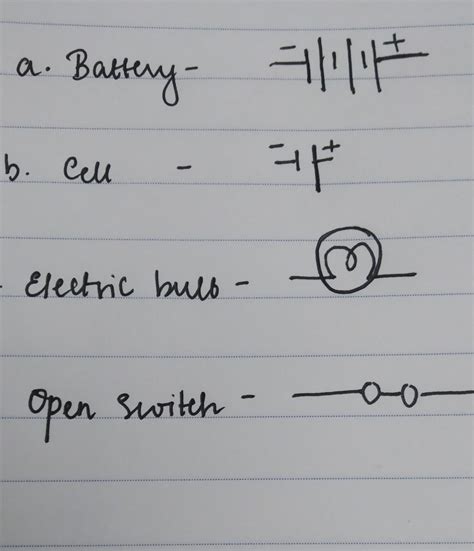 a. Battery -
b. Cell -
Electric bulb -
Open switch -